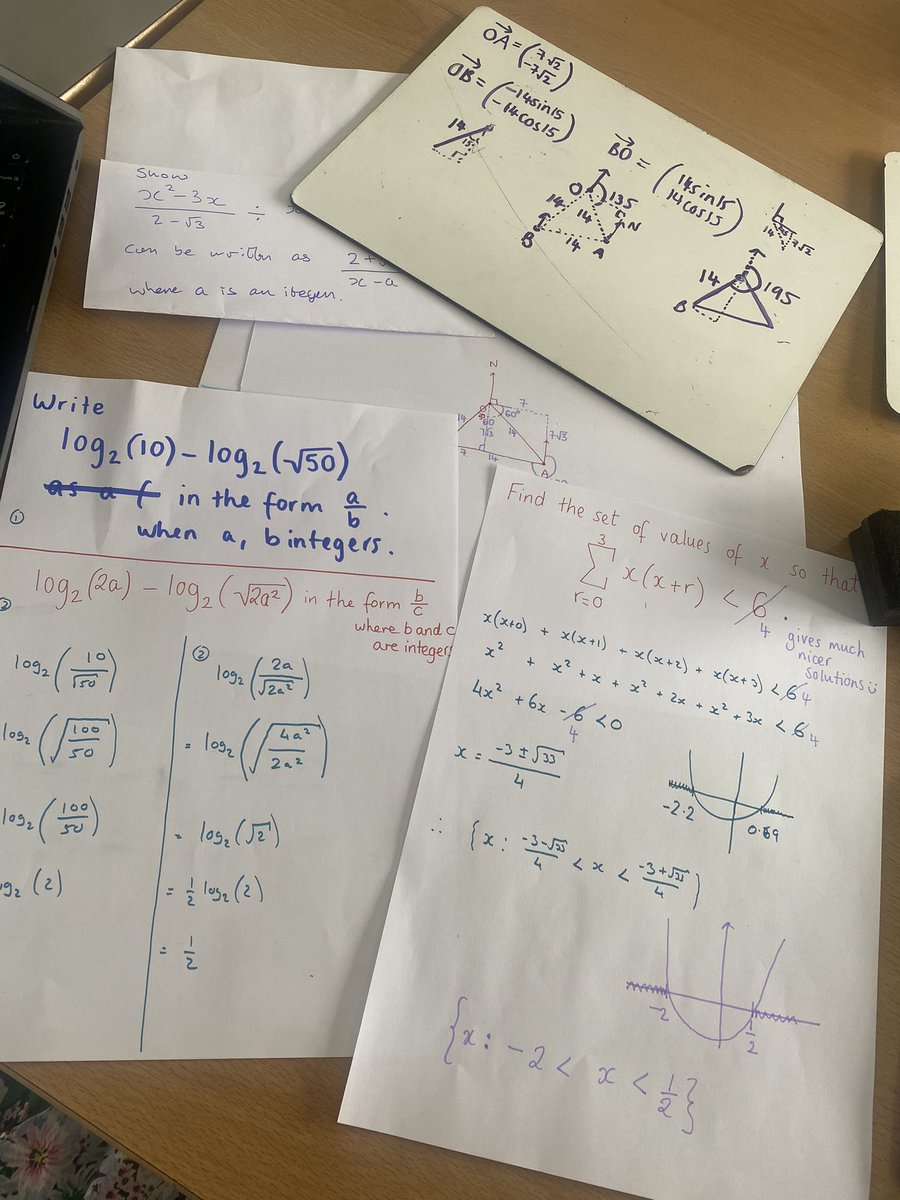 OA = (7√2
-7√2)
OB = (-14sin15
-14cos15)
BO = (14sin15
14cos15)
14
O 135
14 14 N
B 14 A
14 7√2
14 195
B
Show
x² - 3x
2 - √3
÷
can be written as 2+
x - a
where a is an integer.
N
7
60°
60
7√3 14 7√3
7 14 A
Write
log₂(10) - log₂(√50)
as a f in the form a/b.
when a, b integers.
①
log₂(2a) - log₂(√2a²) in the form b/c
where b and c
are integers
log₂(10/√50)
log₂(√100/50)
log₂(100/50)
log₂(2)
②
log₂(2a/√2a²)
= log₂(√4a²/2a²)
= log₂(√2)
= ½ log₂(2)
= ½
Find the set of values of x so that
3
∑ x(x+r) < 6.
r=0
4 gives much
nicer
solutions
x(x+0) + x(x+1) + x(x+2) + x(x+3) < 6 4
x² + x² + x + x² + 2x + x² + 3x < 6 4
4x² + 6x - 6 < 0
4
x = -3 ± √33
4
-2.2 0.69
∴ {x : -3-√33/4 < x < -3+√33/4}
-2 1/2
{x : -2 < x < 1/2}